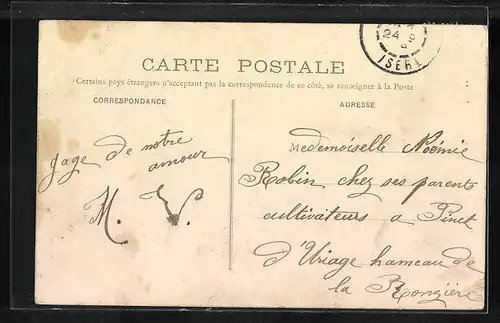 24 9
ISERE
CARTE POSTALE
Certains pays étrangers n'acceptant pas la correspondance de ce côté, se renseigner à la Poste
CORRESPONDANCE
gage de notre
amour
M. V.
ADRESSE
Medemoiselle Noémie
Robin chez ses parents
cultivateurs a Pinet
d'Uriage hameau de
la Ronzière